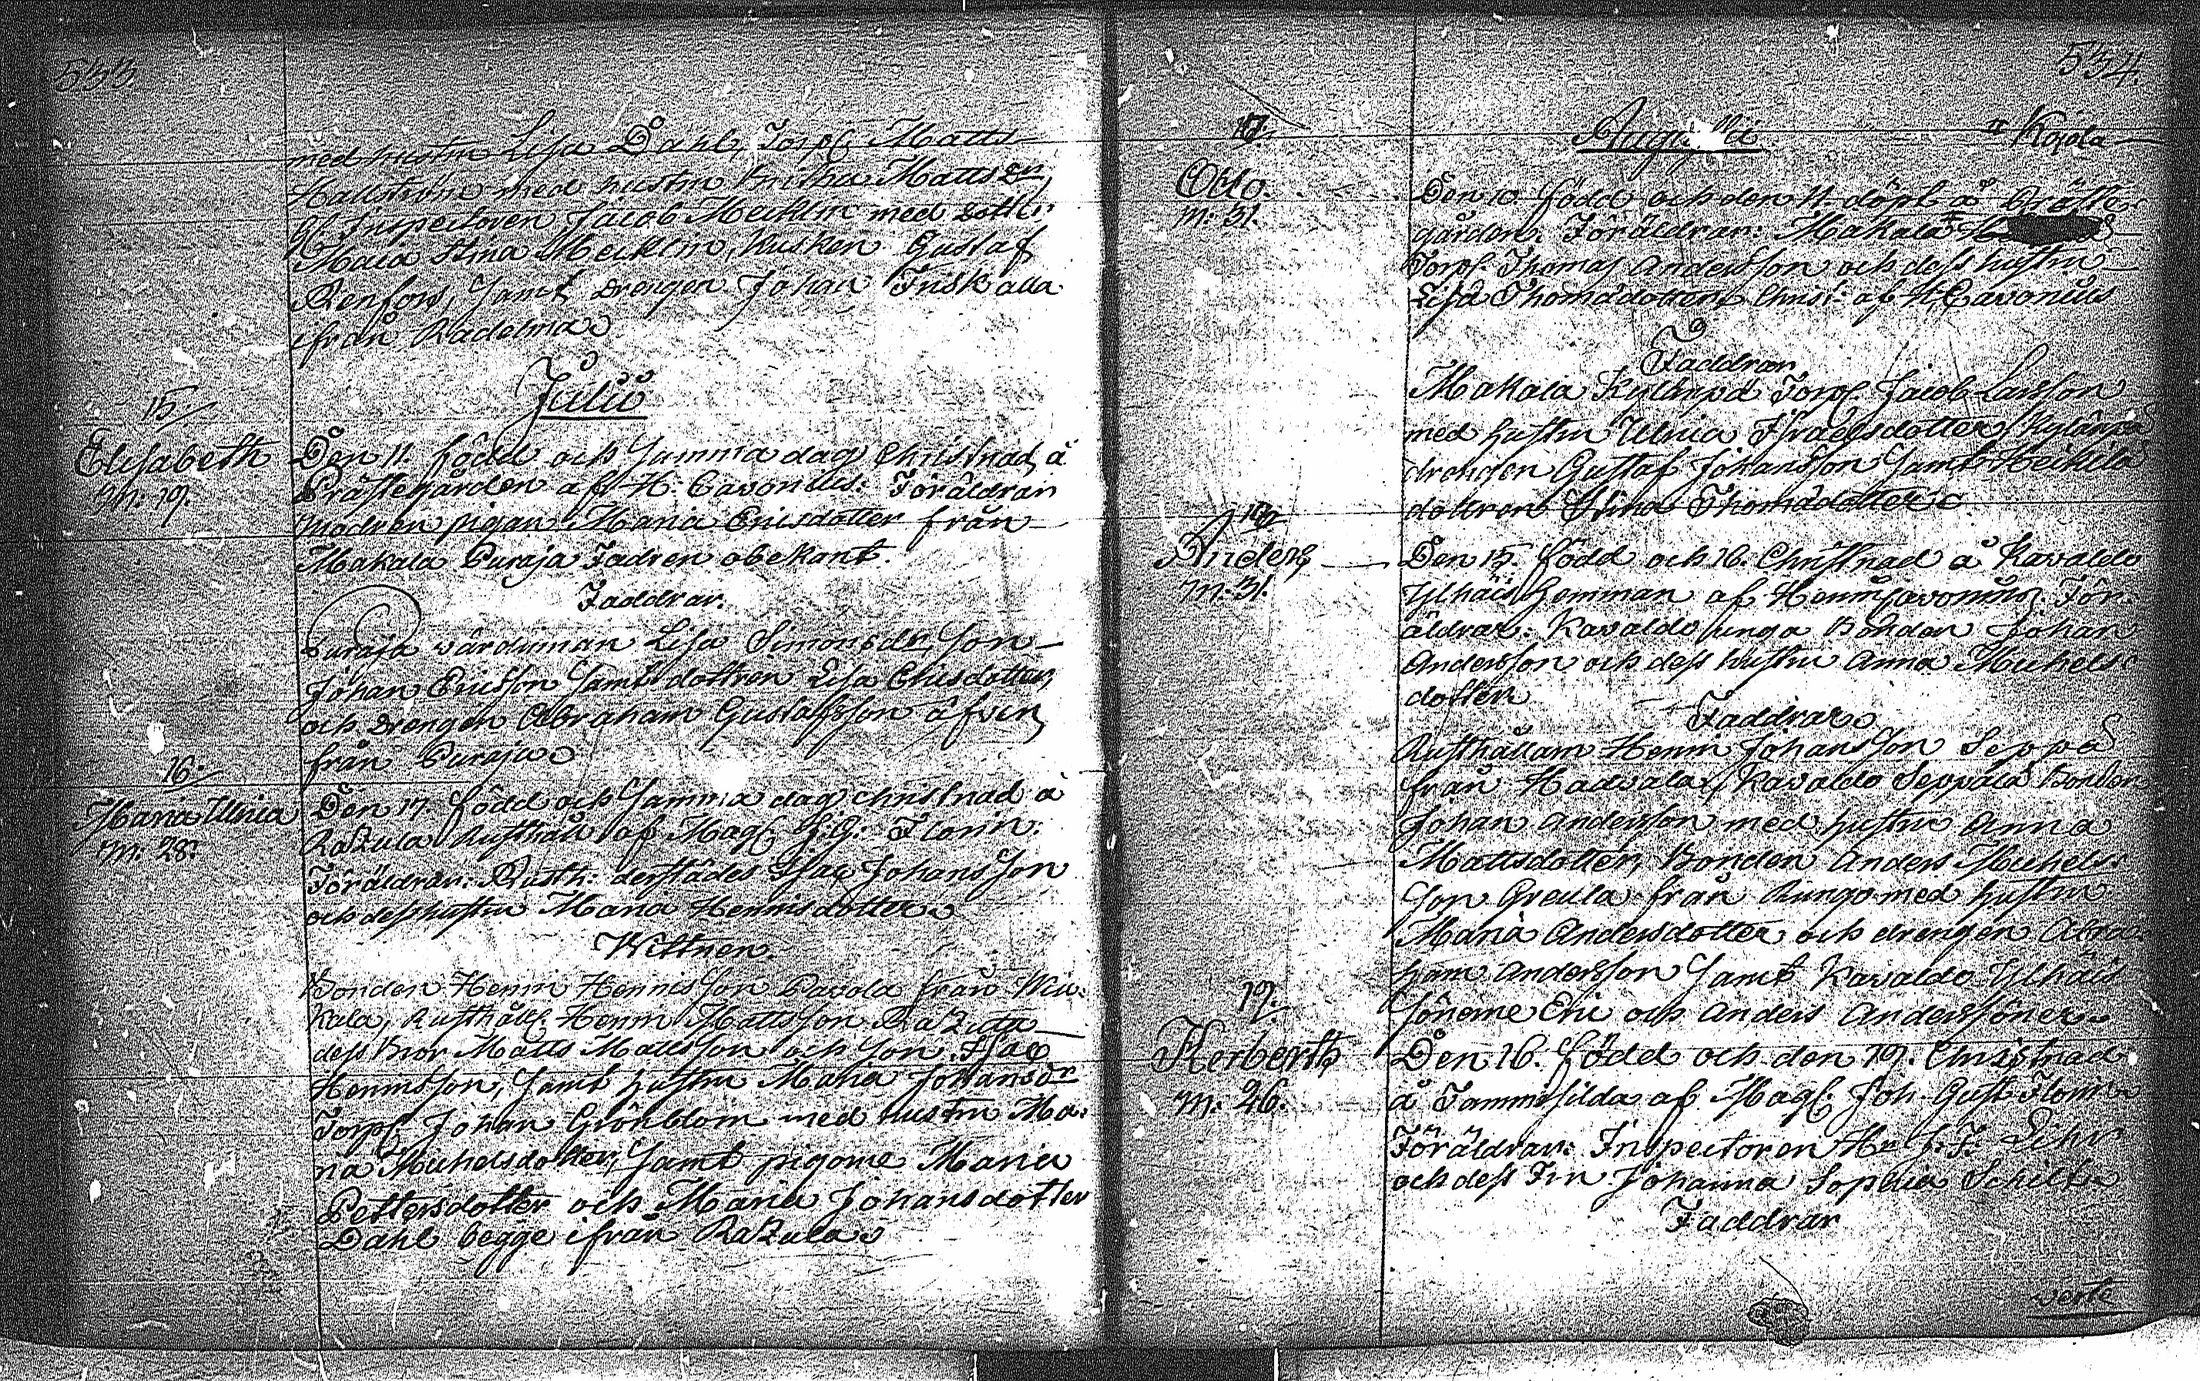 533
med hustru Lisa Dahl, Torp. Matts
Hallström med hustru Kristina Mattsdr
Inspectoren Jacob Mecklin med dotter
Maia Stina Mecklin, Kusken Gustaf
Renfors, Samt drengen Johan Friskalla
ifrån Radelma
Julii
15
Elisabeth
m: 19.
Den 11 född och Samma dag Christnad å
Prästegården af H: Cavonius. Föräldrar
modren pigan Maria Ericsdotter från
Makala Puraja Fadren obekant.
Faddrar.
Puraja värdinnan Lisa Simonsdr, Son
Johan Ericsson Samt dottren Lisa Ericsdotter,
och drengen Abraham Gustafsson äfven
från Puraja
16.
Maria Ulrica
m. 28.
Den 17. född och Samma dag christnad å
Razula Rusthåll af Mag. J. G: Florin.
Föräldrar: Rusth: derstädes Isac Johansson
och dess hustru Maria Henricsdotter
Wittnen.
Bonden Henric Henricsson Pavola från
kala, Rusthåll Henric Mattsson Razula
dess Bror Matts Mattsson och Son Isac
Henricsson, Samt hustru Maria Johansdr
Torp Johan Grönblom med hustru Ma:
ria Michelsdotter, Samt pigorne Maria
Pettersdotter och Maria Johansdotter
Dahl begge ifrån Razula
534
17.
Augusti
# Kojola
Otto
m: 31.
Den 10. född och den 11. döpt å Präste
gården. Föräldrar: Makala #
Torp. Thomas Andersson och dess hustru
Lisa Thomadotter, Christ: af H. Cavonius
Faddrar
Makala Kylänpä Torp. Jacob Larsson
med hustru Ulrica Fredricsdotter, Kylänpä
drengen Gustaf Johansson Samt Heikila
dottren Stina Thomadotter
18.
Anders
m: 31.
Den 15. född och 16. Christnad å Kavaldo
Ylhäis hemman af Henric Cavonius. För
äldrar: Kavaldo unga Bonden Johan
Andersson och dess hustru Anna Michels
dotter
Faddrar
Rusthållarn Henric Johansson Seppä
från Hadvala, Kavaldo Seppälä Bonden
Johan Andersson med hustru Anna
Mattsdotter, Bonden Anders Michels
son Greula från Ringo med hustru
Maria Andersdotter och drengen Abra
ham Andersson Samt Kavaldo Ylhäis
Sönerne Eric och Anders Anderssöner
19.
Herberth
m: 26.
Den 16. född och den 19. Christnad
å Jammisilda af Mag. Joh. Gust. Florin
Föräldrar: Inspectoren Hr J. F.
och dess Fru Johanna Sophia
Faddrar
verte